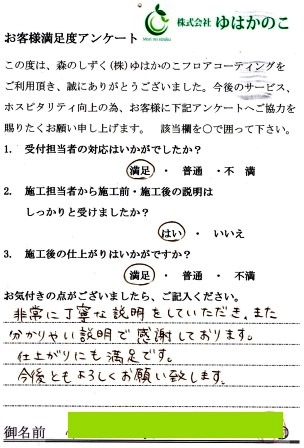 株式会社 ゆはかのこ
お客様満足度アンケート
この度は、森のしずく(株)ゆはかのこフロアコーティングを
ご利用頂き、誠にありがとうございました。今後のサービス、
ホスピタリティ向上の為、お客様に下記アンケートへご協力を
賜りたくお願い申し上げます。 該当欄を○で囲って下さい。
1. 受付担当者の対応はいかがでしたか?
満足 ・ 普通 ・不 満
2. 施工担当者から施工前・施工後の説明は
しっかりと受けましたか?
はい ・ いいえ
3. 施工後の仕上がりはいかがですか?
満足 ・ 普通 ・ 不満
お気付きの点がございましたら、ご記入ください。
非常に丁寧な説明をしていただき、また
分かりやい説明で感謝しております。
仕上がりにも満足です。
今後ともよろしくお願い致します。
御名前